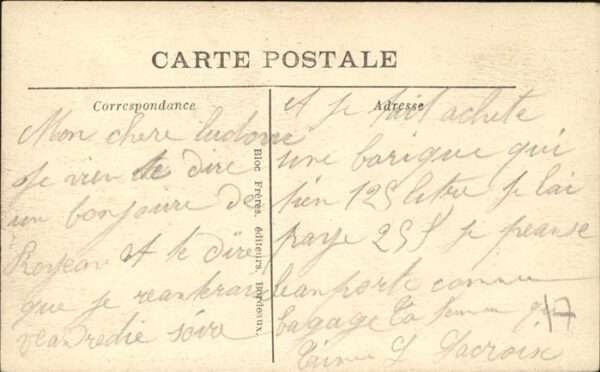 CARTE POSTALE
Correspondance
Adresse
Mon chere ludovic
Je vien te dire
un bonjoure de
Royean et te dire
que je reantrerai
veandredie soire
Bloc Frères, éditeurs, Bordeaux.
et je fait achete
une barique qui
tien 125 litre je lai
paye 25f je peanse
leanporté comme
bagage ta femme qui
t'aime L Lacroix
17